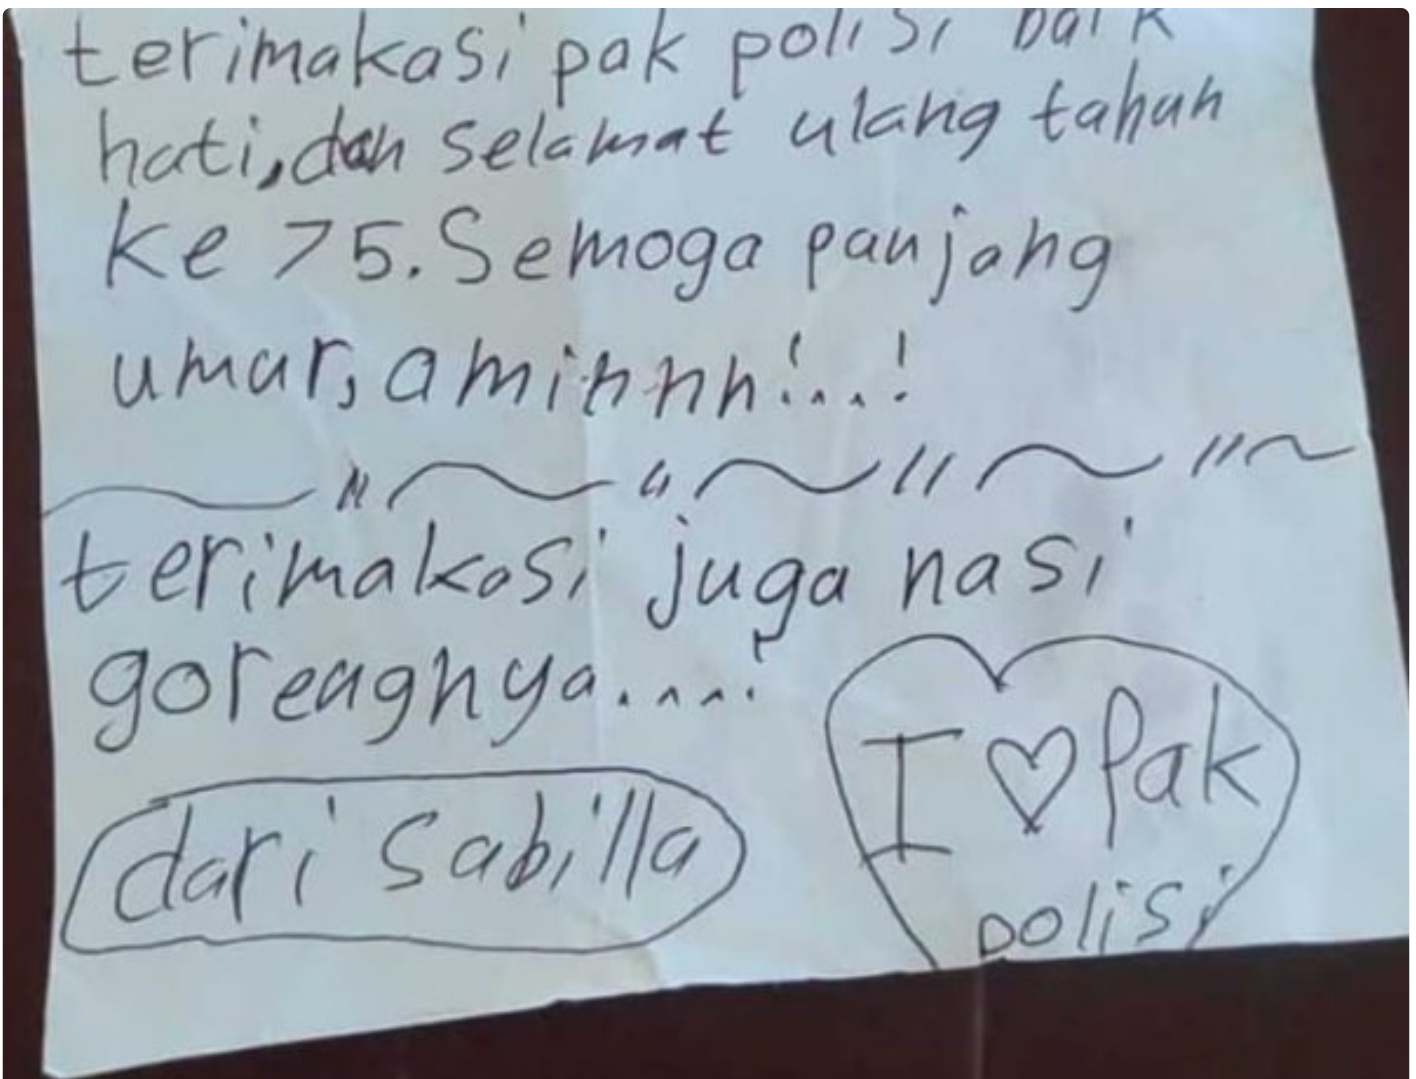 terimakasi pak polisi baik
hati, dan selamat ulang tahun
ke 75. Semoga panjang
umur, aminnnn!...!
terimakasi juga nasi
goreagnya....!
dari sabilla
I ♡ Pak
polisi